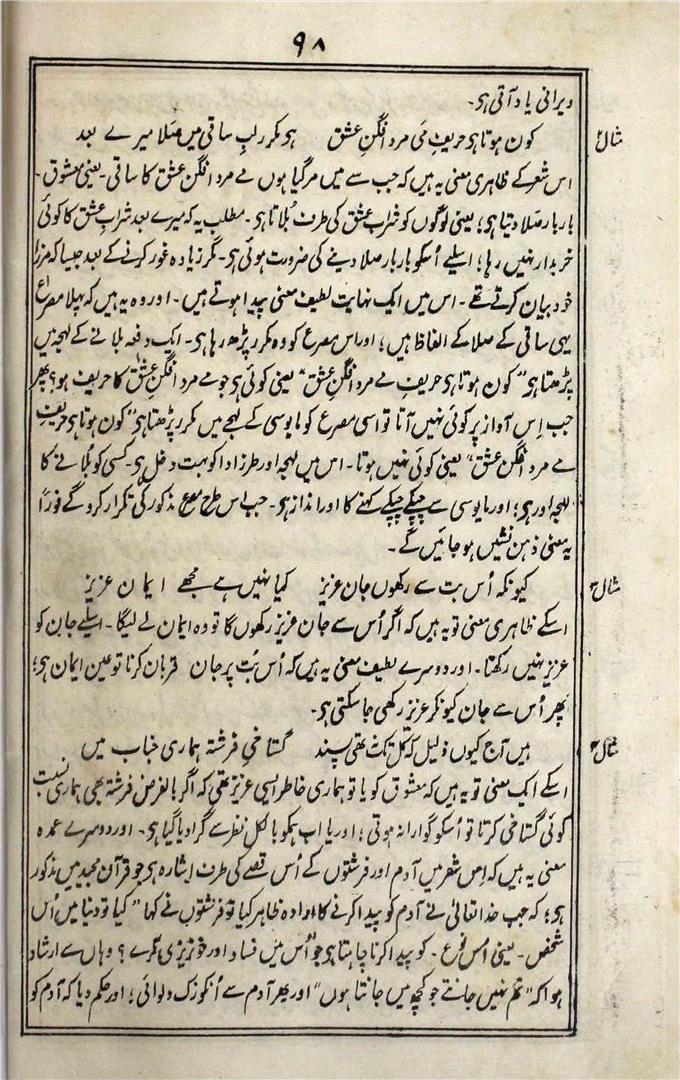 ۹۸
ویرانی یاد آتی ہی۔
مثال کون ہوتا ہی حریفِ مَی مرد افگنِ عشق ہی مکرر لبِ ساقی میں صَلا میرے بعد
اس شعر کے ظاہری معنی یہ ہیں کہ جب سے میں مر گیا ہوں مے مرد افگن عشق کا ساقی۔ یعنی معشوق۔
بار بار صَلا دیتا ہی؛ یعنی لوگوں کو شرابِ عشق کی طرف بُلاتا ہی۔ مطلب یہ کہ میرے بعد شرابِ عشق کا کوئی
خریدار نہیں رہا؛ اسلیے اُسکو بار بار صلا دینے کی ضرورت ہوئی ہی۔ مگر زیادہ غور کرنے کے بعد جیسا کہ مرزا
خود بیان کرتے تھے۔ اس میں ایک نہایت لطیف معنی پیدا ہوتے ہیں۔ اور وہ یہ ہیں کہ پہلا مصراع
یہی ساقی کے صلا کے الفاظ ہیں؛ اور اس مصرع کو وہ مکرر پڑھ رہا ہی۔ ایک دفعہ بلانے کے لہجہ میں
پڑھتا ہی ”کون ہوتا ہی حریفِ مے مرد افگنِ عشق“ یعنی کوئی ہی جو مے مرد افگنِ عشق کا حریف ہو؟ پھر
جب اِس آواز پر کوئی نہیں آتا تو اسی مصرع کو مایوسی کے لہجے میں مکرر پڑھتا ہی ”کون ہوتا ہی حریفِ
مے مرد افگنِ عشق“ یعنی کوئی نہیں ہوتا۔ اس میں لہجہ اور طرزِ ادا کو بہت دخل ہی۔ کسی کو بُلانے کا
لہجہ اور ہی؛ اور مایوسی سے چپکے چپکے کہنے کا اور انداز ہی۔ جب اس طرح مصرع مذکور کی تکرار کرو گے فوراً
یہ معنی ذہن نشیں ہو جائیں گے۔
مثال کیونکہ اُس بت سے رکھوں جان عزیز کیا نہیں ہے مجھے ایمان عزیز
اسکے ظاہری معنی تو یہ ہیں کہ اگر اُس سے جان عزیز رکھوں گا تو وہ ایمان لے لیگا۔ اسلیے جان کو
عزیز نہیں رکھتا۔ اور دوسرے لطیف معنی یہ ہیں کہ اُس بُت پر جان قربان کرنا تو عین ایمان ہی؛
پھر اُس سے جان کیونکر عزیز رکھی جا سکتی ہی۔
مثال ہیں آج کیوں ذلیل کہ کل تک نہ تھی پسند گستاخیِ فرشتہ ہماری جناب میں
اسکے ایک معنی تو یہ ہیں کہ معشوق کو یا تو ہماری خاطر ایسی عزیز تھی کہ اگر بالفرض فرشتہ بھی ہماری نسبت
کوئی گستاخی کرتا تو اُسکو گوارا نہ ہوتی؛ اور یا اب ہمکو بالکل نظر سے گرا دیا گیا ہی۔ اور دوسرے عمدہ
معنی یہ ہیں کہ اِس شعر میں آدم اور فرشتوں کے اُس قصے کی طرف اشارہ ہی جو قرآن مجید میں مذکور
ہی؛ کہ جب خدا تعالیٰ نے آدم کو پیدا کرنے کا ارادہ ظاہر کیا تو فرشتوں نے کہا ”کیا تو دنیا میں اُس
شخص۔ یعنی اُس نوع۔ کو پیدا کرنا چاہتا ہی جو اُس میں فساد اور خونریزی کرے؟ وہاں سے ارشاد
ہوا کہ ”تم نہیں جانتے جو کچھ میں جانتا ہوں“ اور پھر آدم سے اُنکو زک دلوائی؛ اور حکم دیا کہ آدم کو